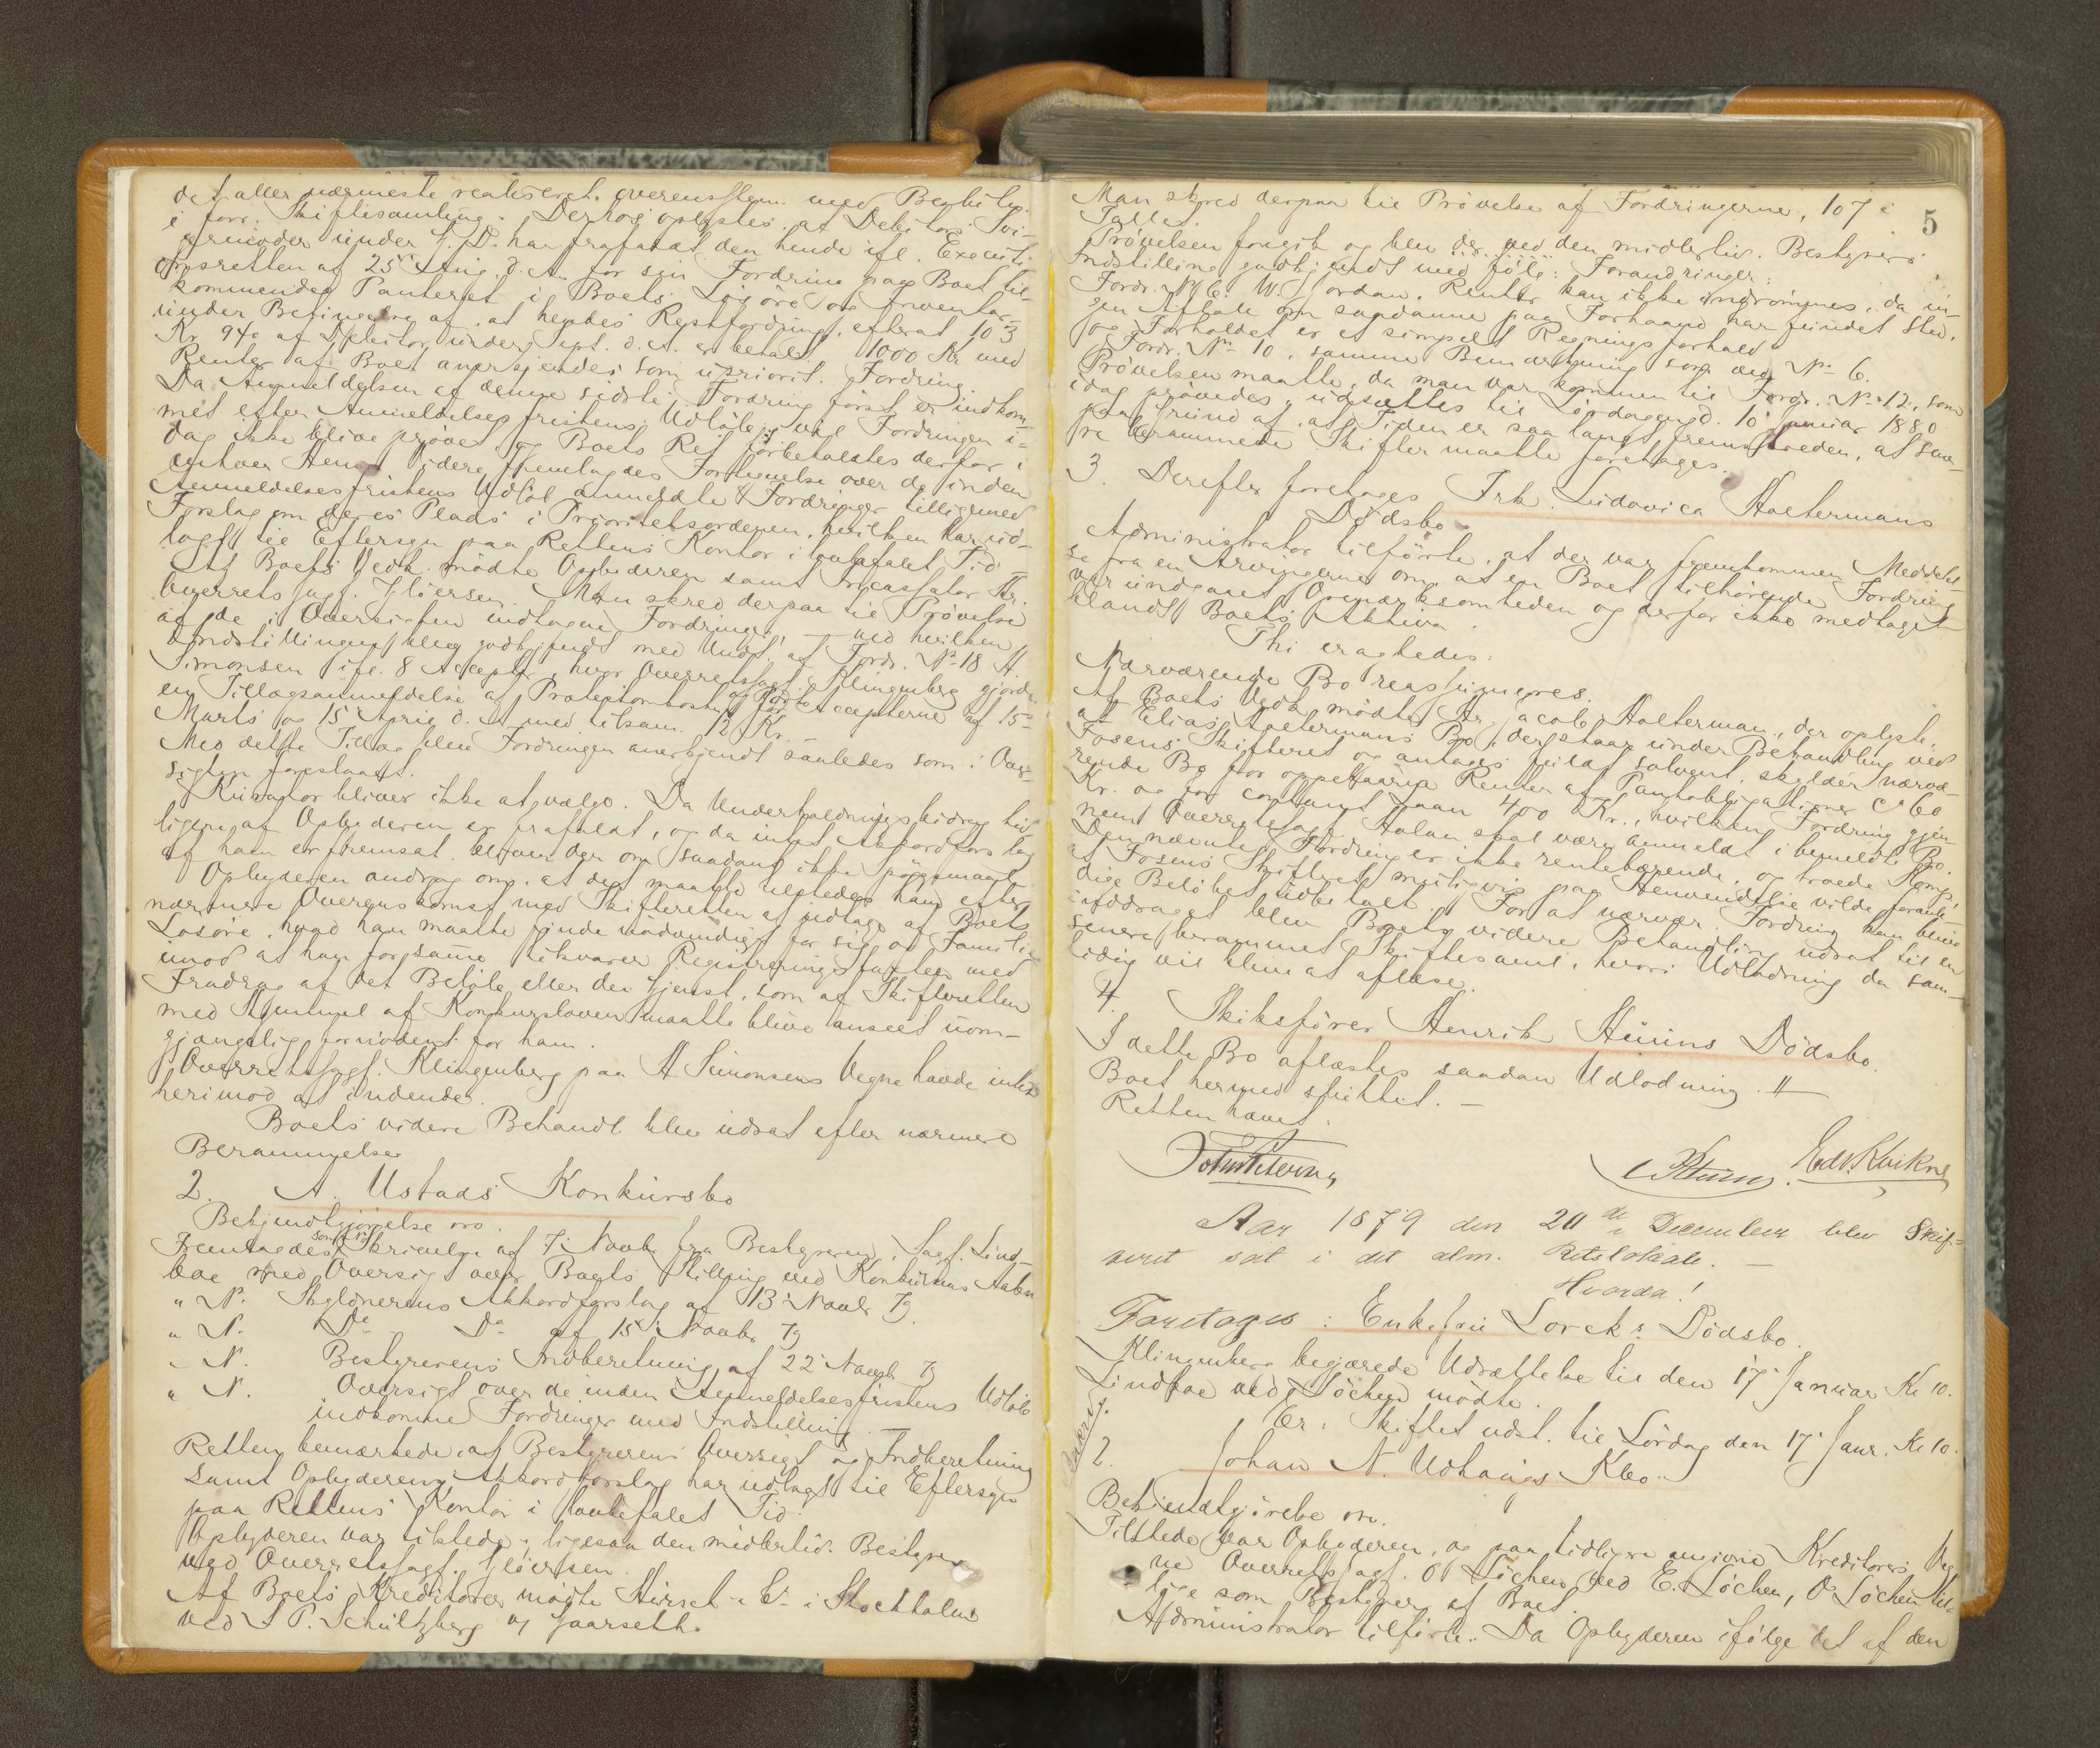 det aller nærmeste realiseret overensstem. med Beslutn.
i forr. Skiftesamling. Derhos oplystes, at Debitors Svi-
germoder under J. D. har frafaldt den hende ifl. Executi-
onsretten af 25 Aug. d. A. for sin Fordring paa Boet til-
kommende Panteret i Boets Lösöre og Inventar,
under Betingelse af, at hendes Restfordring, efterat 103
Kr. 94 ø af Debitor under Sept. d. A. er betalt 1000 Kr med
Renter af Boet anerkjendes som upriorit. Fordring.
Da Anmeldelsen af denne sidste Fordring först er indkom-
met efter Anmeldelsesfristens Udlöb, vil Fordringen i-
dag ikke blive prövet og Boets Ret forbeholdtes derfor i
enhver Hens. Videre fremlagdes Fortegnelse over de inden
Anmeldelsesfristens Udlöb anmeldte Fordringer tilligemed
Forslag om deres Plads i Prioritetsordenen, hvilken har ud-
lagt til Eftersyn paa Rettens Kontor i lovbefalet Tid.
Af Boets Vedk. mödte Opbyderen samt Incassator Hr.
Overretssagf. Klöersen. Man skred derpaa til Prövelse
af de i Oversigten indtagne Fordringer, — ved hvilken
Indstillingen blev godkjendt med Undt. af Fordr. No 18 A
Simonsen ifl. 8 Accepter, hvor Overretssagf. Klingenberg gjorde
en Tillægsanmeldelse af Protestomkostn. for Accepterne af 15de
Marts og 15 April d. A. med tilsam. 12 Kr. —
Med dette Tillæg blev Fordringen anerkjendt saaledes som i Over-
sigten foreslaaet.
Kurator bliver ikke at vælge. Da Underholdningsbidrag tid-
ligere af Opbyderen er frafaldt, og da intet Akkordforslag
af ham er fremsat, bliver der om saadant ikke spörgsmaal.
Opbyderen androg om, at det maatte tilstedes ham efter
nærmere Overenskomst med Skifteretten at udtage af Boets
Lösöre, hvad han maatte finde nödvendigt for sig og Familie
imod at han for samme tilsvarer Registreringstaxten med
Fradrag af det Belöb, eller den Gjenst., som af Skifteretten
med Hjemmel af Konkursloven maatte blive anseet uom-
gjængelig fornödent for ham.
Overretssagf. Klingenberg paa A Simonsens Vegne havde intet
herimod at indvende.
Boets videre Behandl. blev udsat efter nærmere
Berammelse
2. A. Ustads Konkursbo
Bekjendtgjörelse oro.
Fremlagdes som No Skrivelse af 7 Novbr fra Bestyreren, Sagf. Lind-
boe med Oversigt over Boets Stilling ved Konkursens Aabn
" N. Skyldnerens Akkordforslag af 13 Novbr 79.
" N. Do Do af 15 Novbr 79
" N. Bestyrerens Indberetning af 22 Novbr 79
" N. Oversigt over de inden Anmeldelsesfristens Udlöb
indkomne Fordringer med Indstilling. —
Retten bemærkede, at Bestyrerens Oversigt og Indberetning
samt Opbyderens Akkordforslag har udlagt til Eftersyn
paa Rettens Kontor i lovbefalet Tid.
Opbyderen var tilstede, ligesaa den midlertid. Bestyrer
ved Overretssagf. Klöersen.
Af Boets Kreditorer mödte Hirsch & Co i Stockholm
ved S P. Schultzberg og Gaarseth.
5
Man skred derpaa til Prövelse af Fordringerne, 107 i
Tallet.
Prövelsen foregik og blev der ved den midlertid. Bestyrers
Indstilling godkjendt med fölg. Forandringer:
Fordr. No 6. W. Jordan. Renter kan ikke indrömmes, da in-
gen Aftale om saadanne paa Forhaand har fundet Sted,
og Forholdet er et simpelt Regningsforhold.
Fordr. No 10, samme Bemærkning som ved No 6.
Prövelsen maatte, da man var kommen til Fordr. No 12, som
idag prövedes, udsættes til Lördagen d. 10 Januar 1880
paa Grund af, at Tiden er saa langt fremskreden, at sene-
re berammede Skifter maatte foretages.
3. Derefter foretages Frk. Ludovica Haltermans
Dödsbo
Administrator tilförte, at der var fremkommen Meddelel-
se fra en Arvingerne om, at en Boet tilhörende Fordring
var undgaaet Opmærksomheden og derfor ikke medtaget
blandt Boets Aktiva.
Thi eragtedes:
Nærværende Bo reassumeres.
Af Boets Vedk. mödte Hr. Jacob Halterman, der oplyste,
at Elias Haltermans Bo, der staar under Behandling ved
Fosens Skifteret og antages fuldt solvent, skylder nærvæ-
rende Bo for oppebaarne Renter af Pantobligationer ca 60
Kr. og for contant Laan 400 Kr., hvilken Fordring gjen-
nem Overretssagf. Hølan skal være anmeldt i bemeldte Bo.
Den nævnte Fordring er ikke rentebærende, og troede Komp.
at Fosens Skifteret muligvis paa Henvendelse vilde foranle-
dige Belöbet udbetalt. For at nærvær. Fordring kan blive
inddraget blev Boets videre Behandling udsat til en
senere berammet Skiftesaml., hvori Udlodning da sam-
tidig vil blive at aflæse.
4. Skibsförer Henrik Huuns Dödsbo.
I dette Bo aflæstes saadan Udlodning. #
Boet hermed sluttet. —
Retten hævet.
Edv. Kvikne
Aar 1879 den 20de December blev Skif-
teret sat i det alm. Retslokale. —
Hvorda!
Foretages: Enkefru Lorcks Dödsbo.
Klingenberg begjærede Udsættelse til den 17 Januar Kl 10.
Lindboe ved Löchen mödte.
Er: Skiftet udst. til Lördag den 17 Janr. Kl 10.
2. Johan N. Udhaugs Kbo.
Bekjendtgjörelse oro.
Tilstede var Opbyderen, og paa tidligere angivne Kreditorers Veg-
ne Overretssagf. O Löchen ved E. Löchen, O Löchen til-
lige som Bestyrer af Boet.
Administrator tilförte: Da Opbyderen ifölge det af den